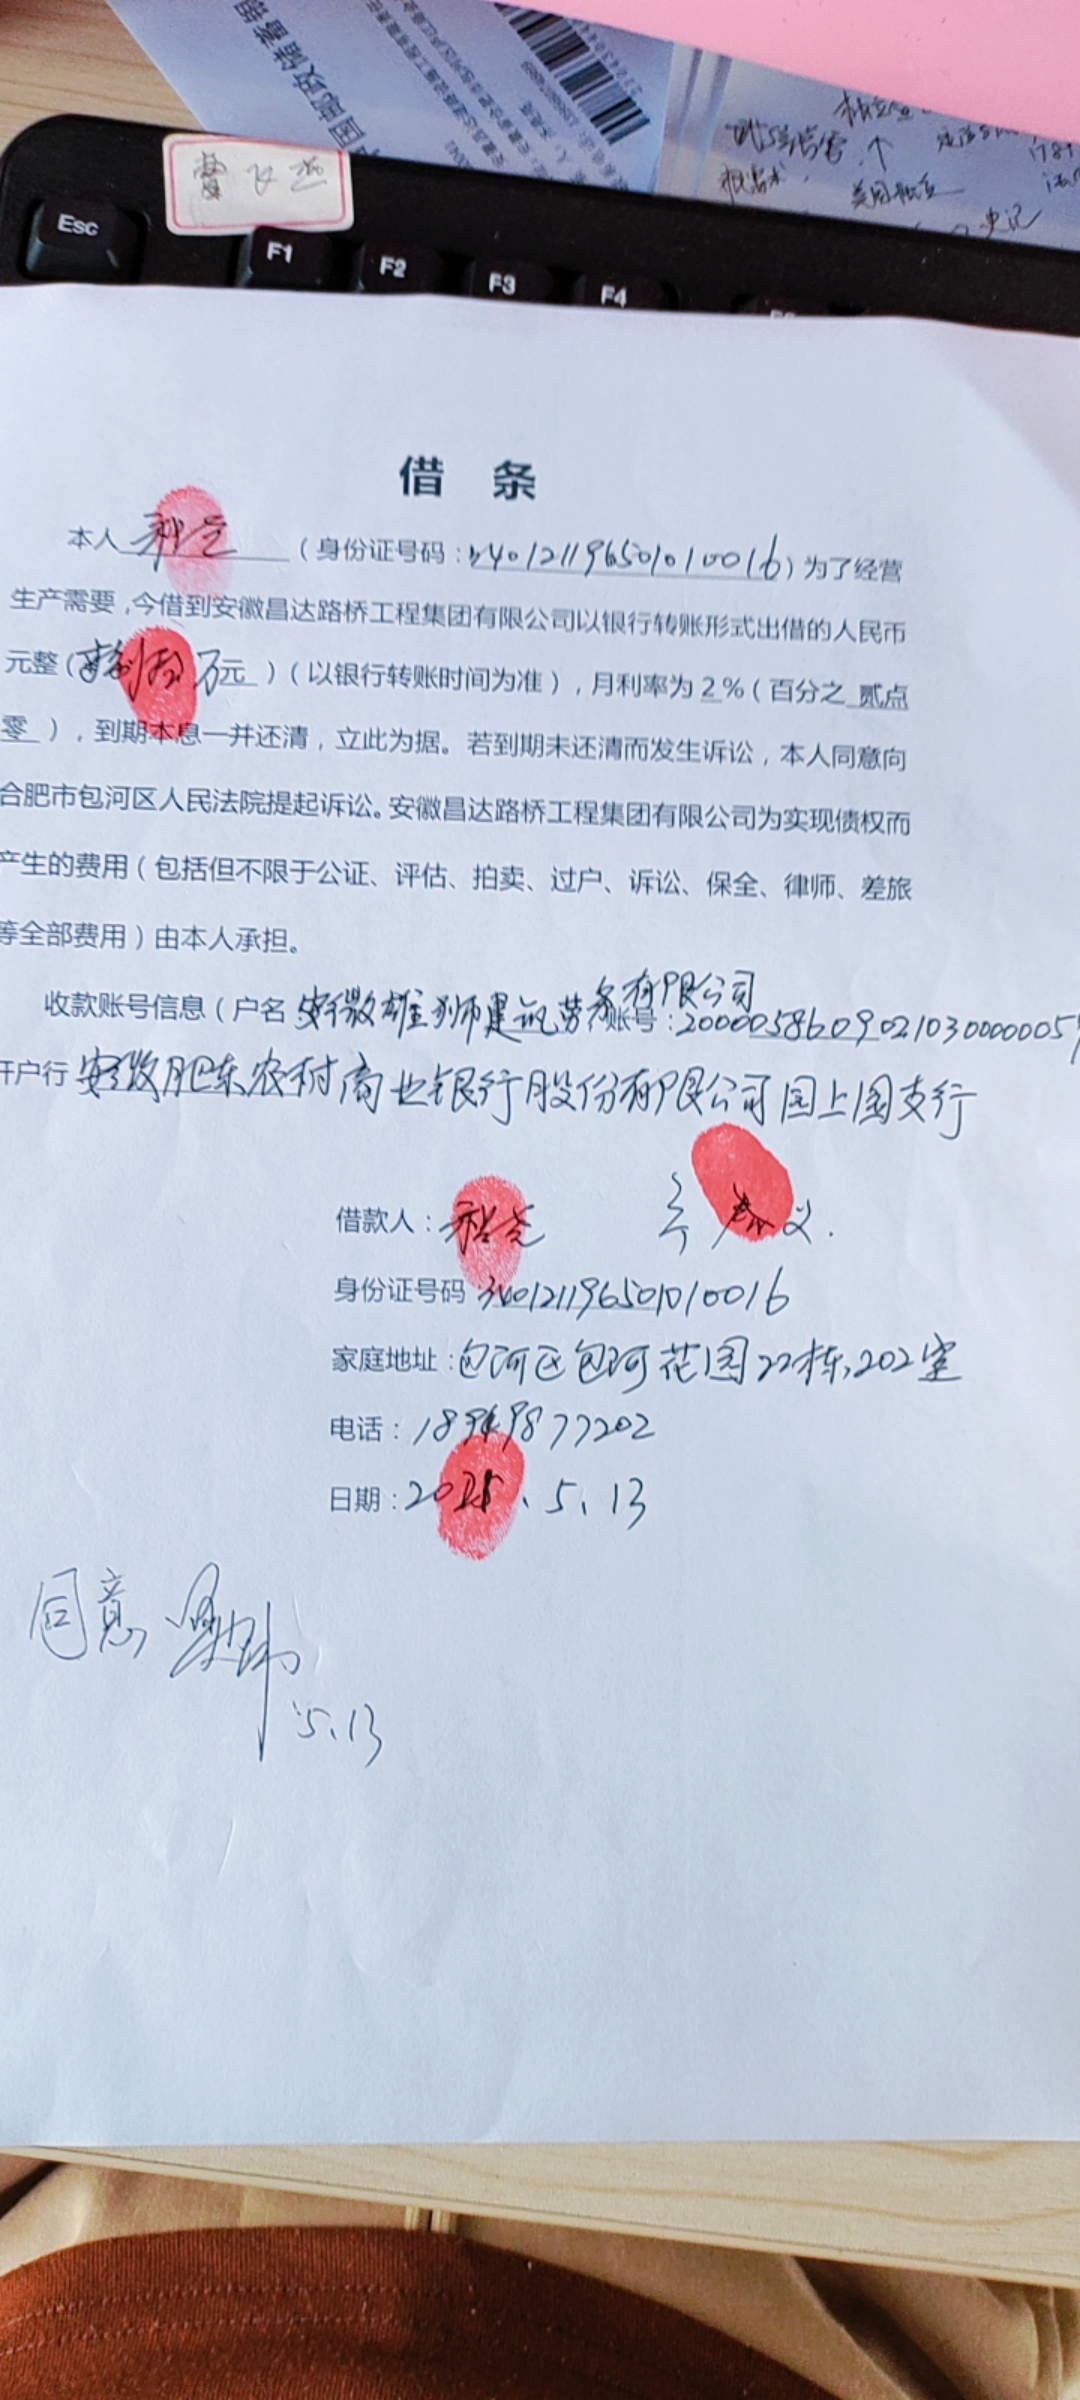 Esc
F1
F2
F3
F4
借 条
本人（身份证号码：340121196501010016）为了经营
生产需要，今借到安徽昌达路桥工程集团有限公司以银行转账形式出借的人民币
元整（万元）（以银行转账时间为准），月利率为2%（百分之 贰点
零），到期本息一并还清，立此为据。若到期未还清而发生诉讼，本人同意向
合肥市包河区人民法院提起诉讼。安徽昌达路桥工程集团有限公司为实现债权而
产生的费用（包括但不限于公证、评估、拍卖、过户、诉讼、保全、律师、差旅
等全部费用）由本人承担。
收款账号信息（户名 安徽雄狮建筑劳务有限公司 账号：
开户行 安徽肥东农村商业银行股份有限公司
借款人：
身份证号码 340121196501010016
家庭地址：包河区包河花园22栋202室
电话：
日期：2025.5.13
同意
5.13